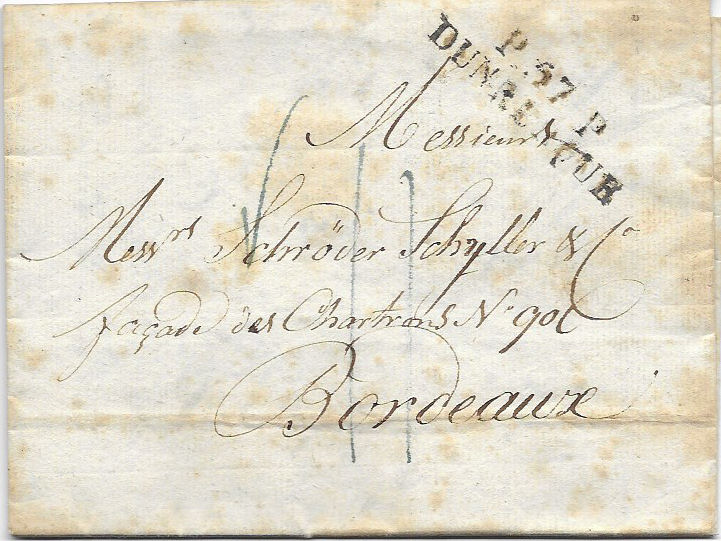 P.57.P
DUNKERQUE
Messieurs
Messrs Schröder Schyller & Co
façade des Chartrons No 90
Bordeaux